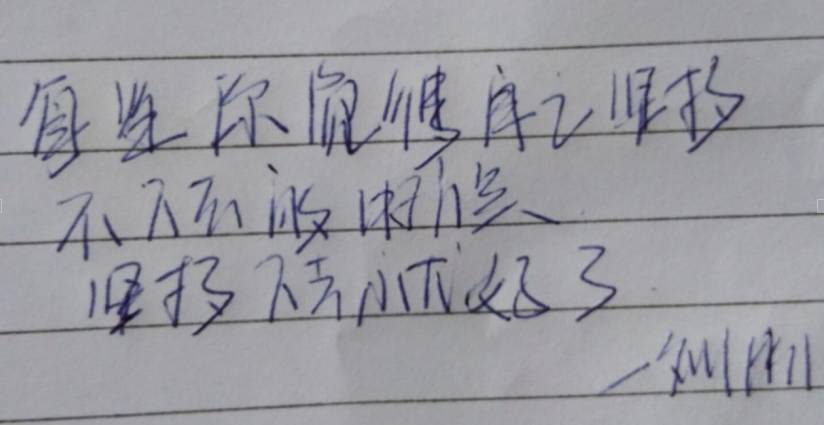 每当你觉得自己坚持
不下去的时候
坚持下去就好了
—刘刚